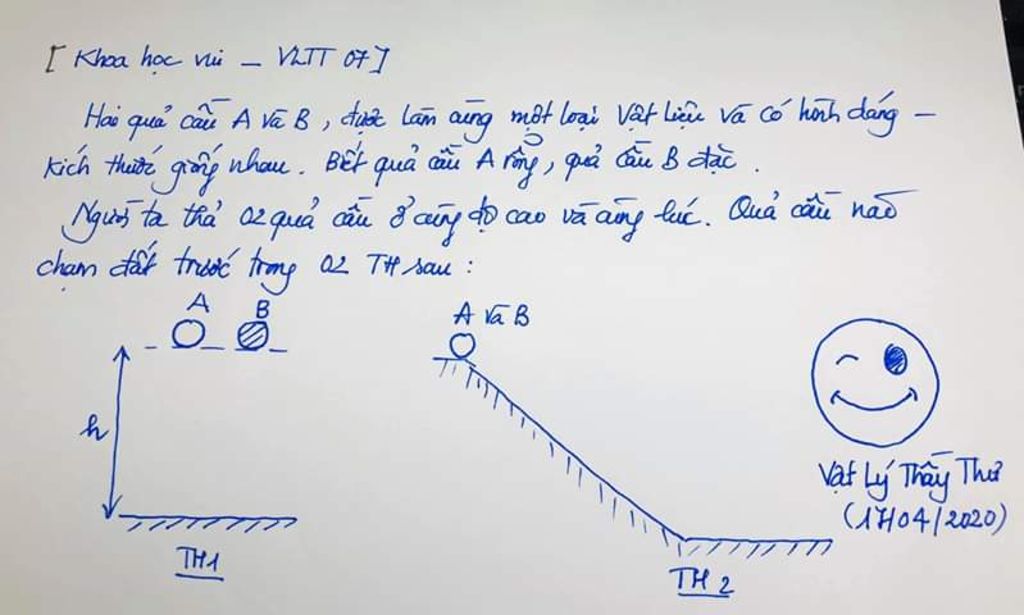 [ Khoa học vui – VLTT 07]
Hai quả cầu A và B, được làm cùng một loại vật liệu và có hình dáng –
kích thước giống nhau. Biết quả cầu A rỗng, quả cầu B đặc.
Người ta thả 02 quả cầu ở cùng độ cao và cùng lúc. Quả cầu nào
chạm đất trước trong 02 TH sau :
A B
A và B
h
Vật Lý Thầy Thư
(17/04/2020)
TH1
TH 2